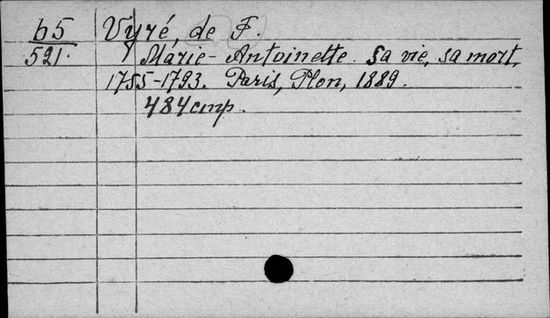 b5 Vyré, de F.
521. Marie-Antoinette. Sa vie, sa mort,
1755-1793. Paris, Plon, 1889.
484 cmp.